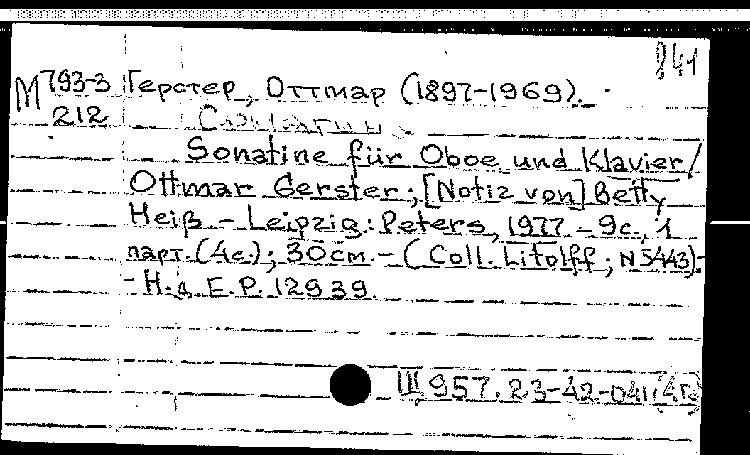 841
М 793-3 Герстер, Оттмар (1897-1969).
212
Sonatine für Oboe und Klavier /
Ottmar Gerster; [Notiz von] Betty
Heiß - Leipzig: Peters, 1977 - 9с., 1
парт. (4с.); 30см. - (Coll. Litolff; N 5443).-
- Н.д. E.P. 12939.
Щ957.23-42-041